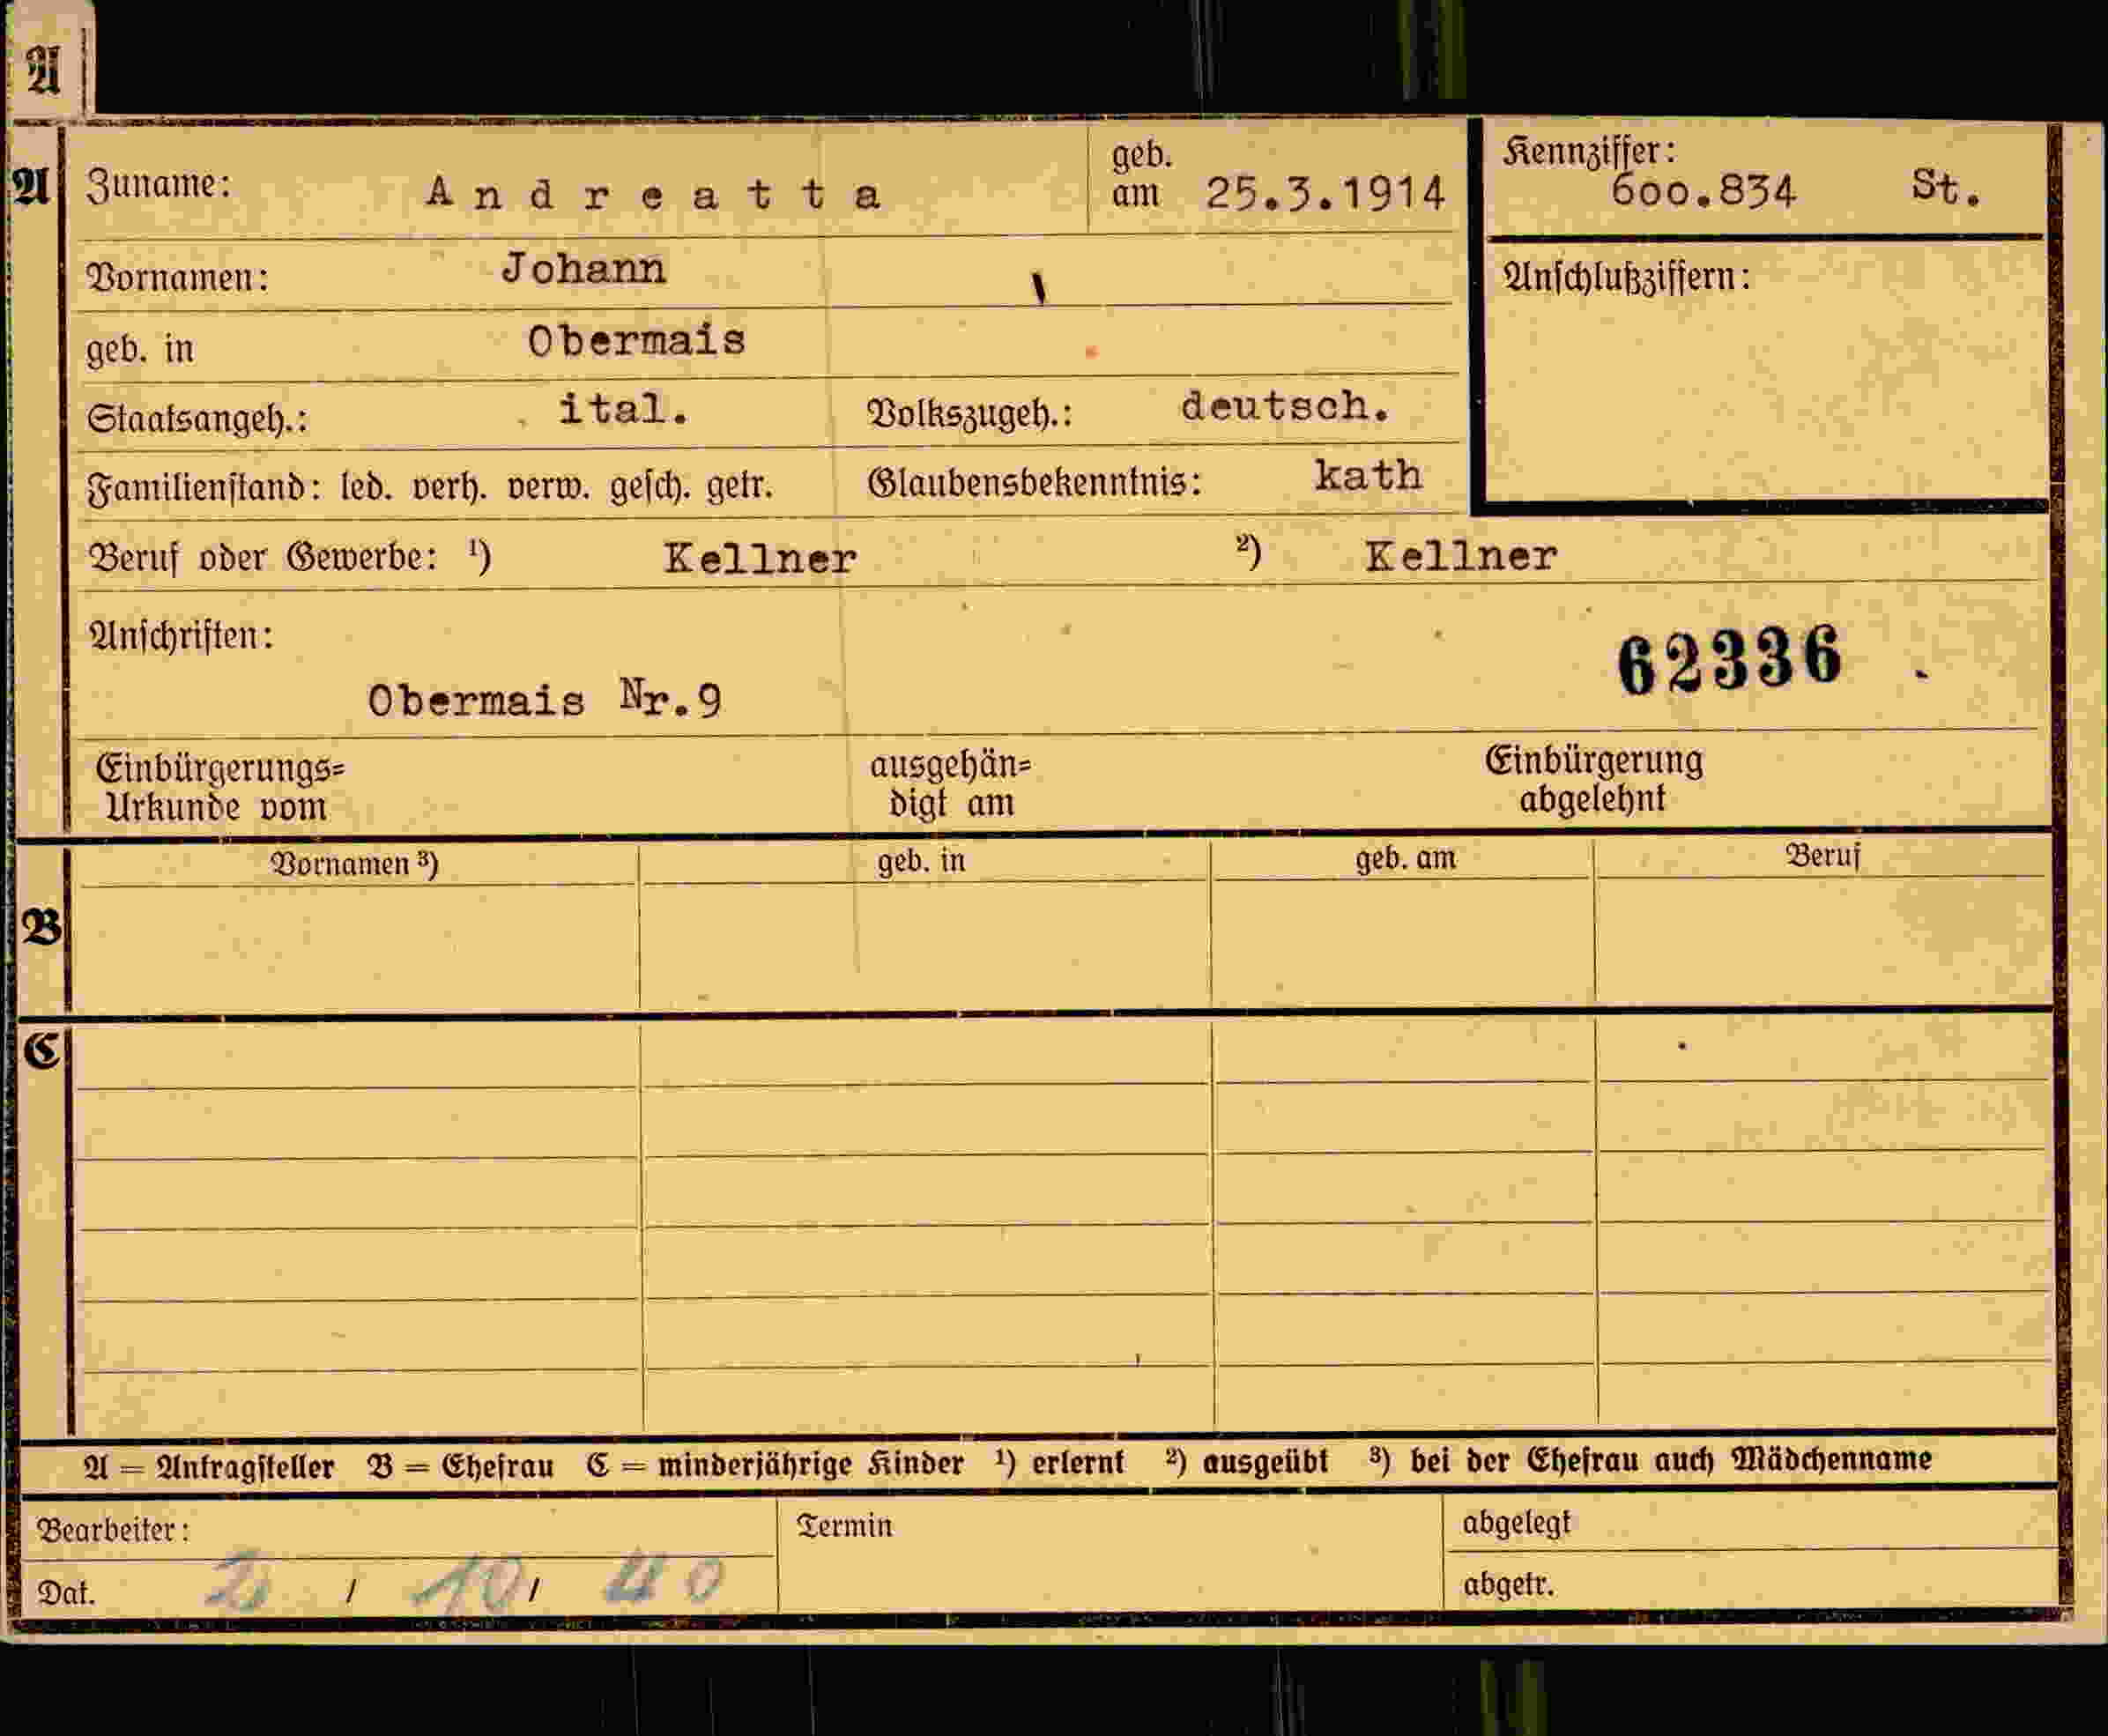 A
A
Zuname: Andreatta geb. am 25.3.1914
Kennziffer: 600.834 St.
Vornamen: Johann
Anschlußziffern:
geb. in Obermais
Staatsangeh.: ital. Volkszugeh.: deutsch.
Familienstand: led. verh. verw. gesch. getr. Glaubensbekenntnis: kath
Beruf oder Gewerbe: ¹) Kellner ²) Kellner
Anschriften:
62336
Obermais Nr.9
Einbürgerungs=
Urkunde vom
ausgehän=
digt am
Einbürgerung
abgelehnt
B
Vornamen ³) geb. in geb. am Beruf
C
A = Antragsteller B = Ehefrau C = minderjährige Kinder ¹) erlernt ²) ausgeübt ³) bei der Ehefrau auch Mädchenname
Bearbeiter: Termin abgelegt
Dat. 2 / 10 / 40 abgetr.